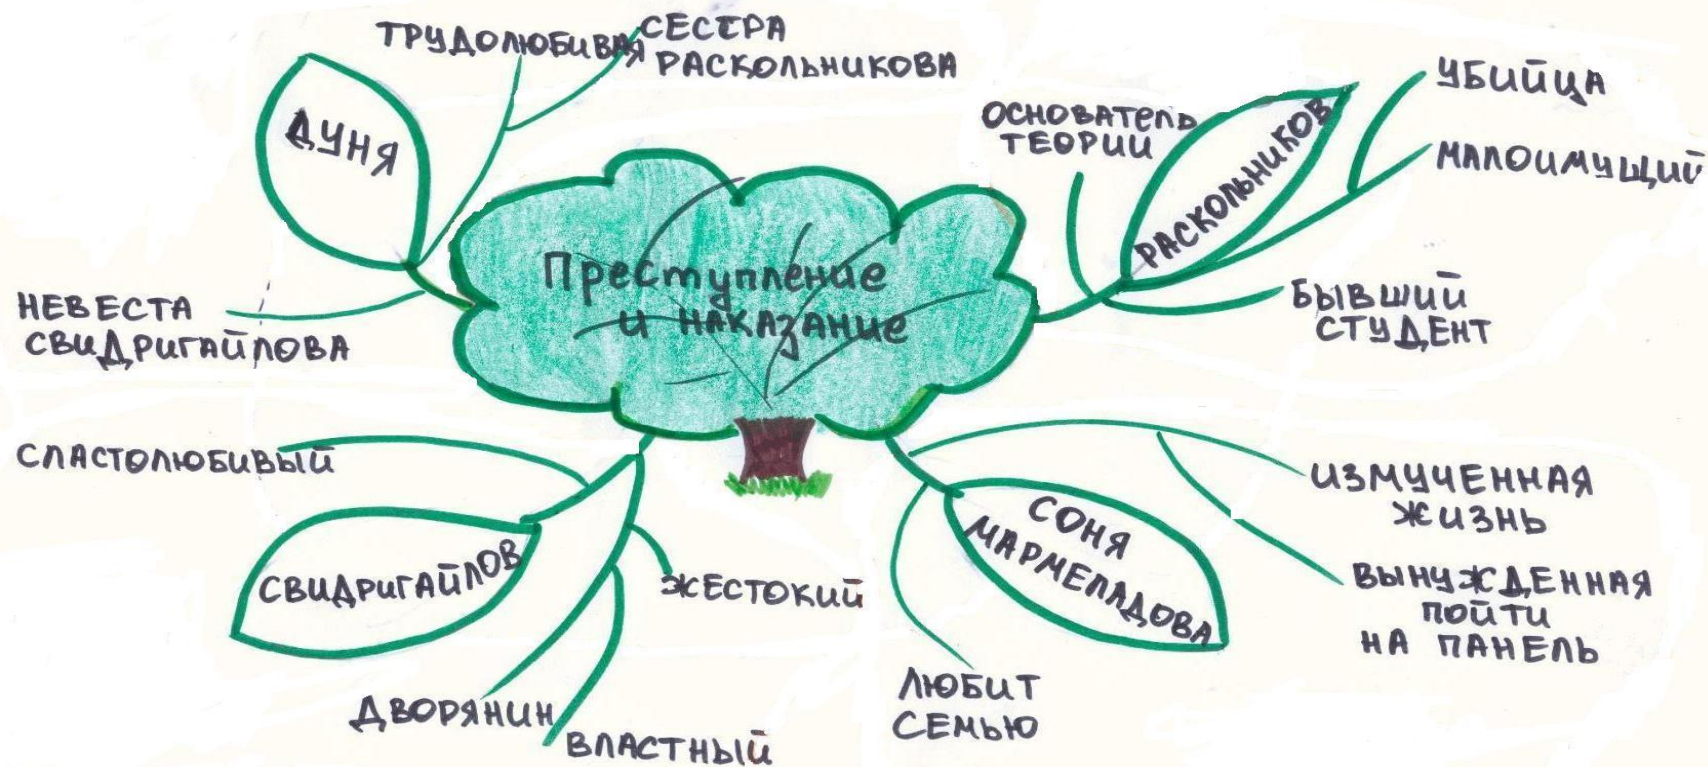 Преступление
и наказание
ДУНЯ
ТРУДОЛЮБИВАЯ
СЕСТРА
РАСКОЛЬНИКОВА
НЕВЕСТА
СВИДРИГАЙЛОВА
РАСКОЛЬНИКОВ
ОСНОВАТЕЛЬ
ТЕОРИИ
УБИЙЦА
МАЛОИМУЩИЙ
БЫВШИЙ
СТУДЕНТ
СВИДРИГАЙЛОВ
СЛАСТОЛЮБИВЫЙ
ЖЕСТОКИЙ
ДВОРЯНИН
ВЛАСТНЫЙ
СОНЯ
МАРМЕЛАДОВА
ИЗМУЧЕННАЯ
ЖИЗНЬ
ВЫНУЖДЕННАЯ
ПОЙТИ
НА ПАНЕЛЬ
ЛЮБИТ
СЕМЬЮ